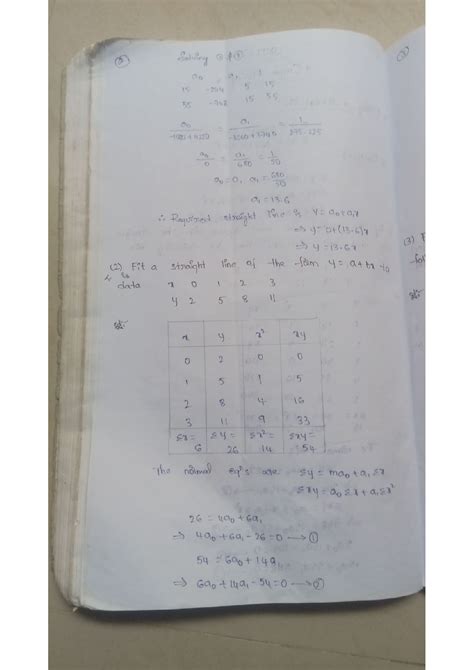 Solving ③ & ④
a₀ a₁ 1
15 -204 5 15
55 15 55
a₁ = 1
a₀/0 = a₁/680 = 1/50
a₀ = 0, a₁ = 680/50
a₁ = 13.6
∴ Required straight line is y = a₀ + a₁x
⇒ y = 0 + (13.6)x
⇒ y = 13.6x
(2) Fit a straight line of the form y = a + bx to
data x 0 1 2 3
y 2 5 8 11
Sol:
x y x² xy
0 2 0 0
1 5 1 5
2 8 4 16
3 11 9 33
Σx = 6 Σy = 26 Σx² = 14 Σxy = 54
The normal eq's are Σy = ma₀ + a₁Σx
Σxy = a₀Σx + a₁Σx²
26 = 4a₀ + 6a₁
⇒ 4a₀ + 6a₁ - 26 = 0 → ①
54 = 6a₀ + 14a₁
⇒ 6a₀ + 14a₁ - 54 = 0 → ②
(3) F